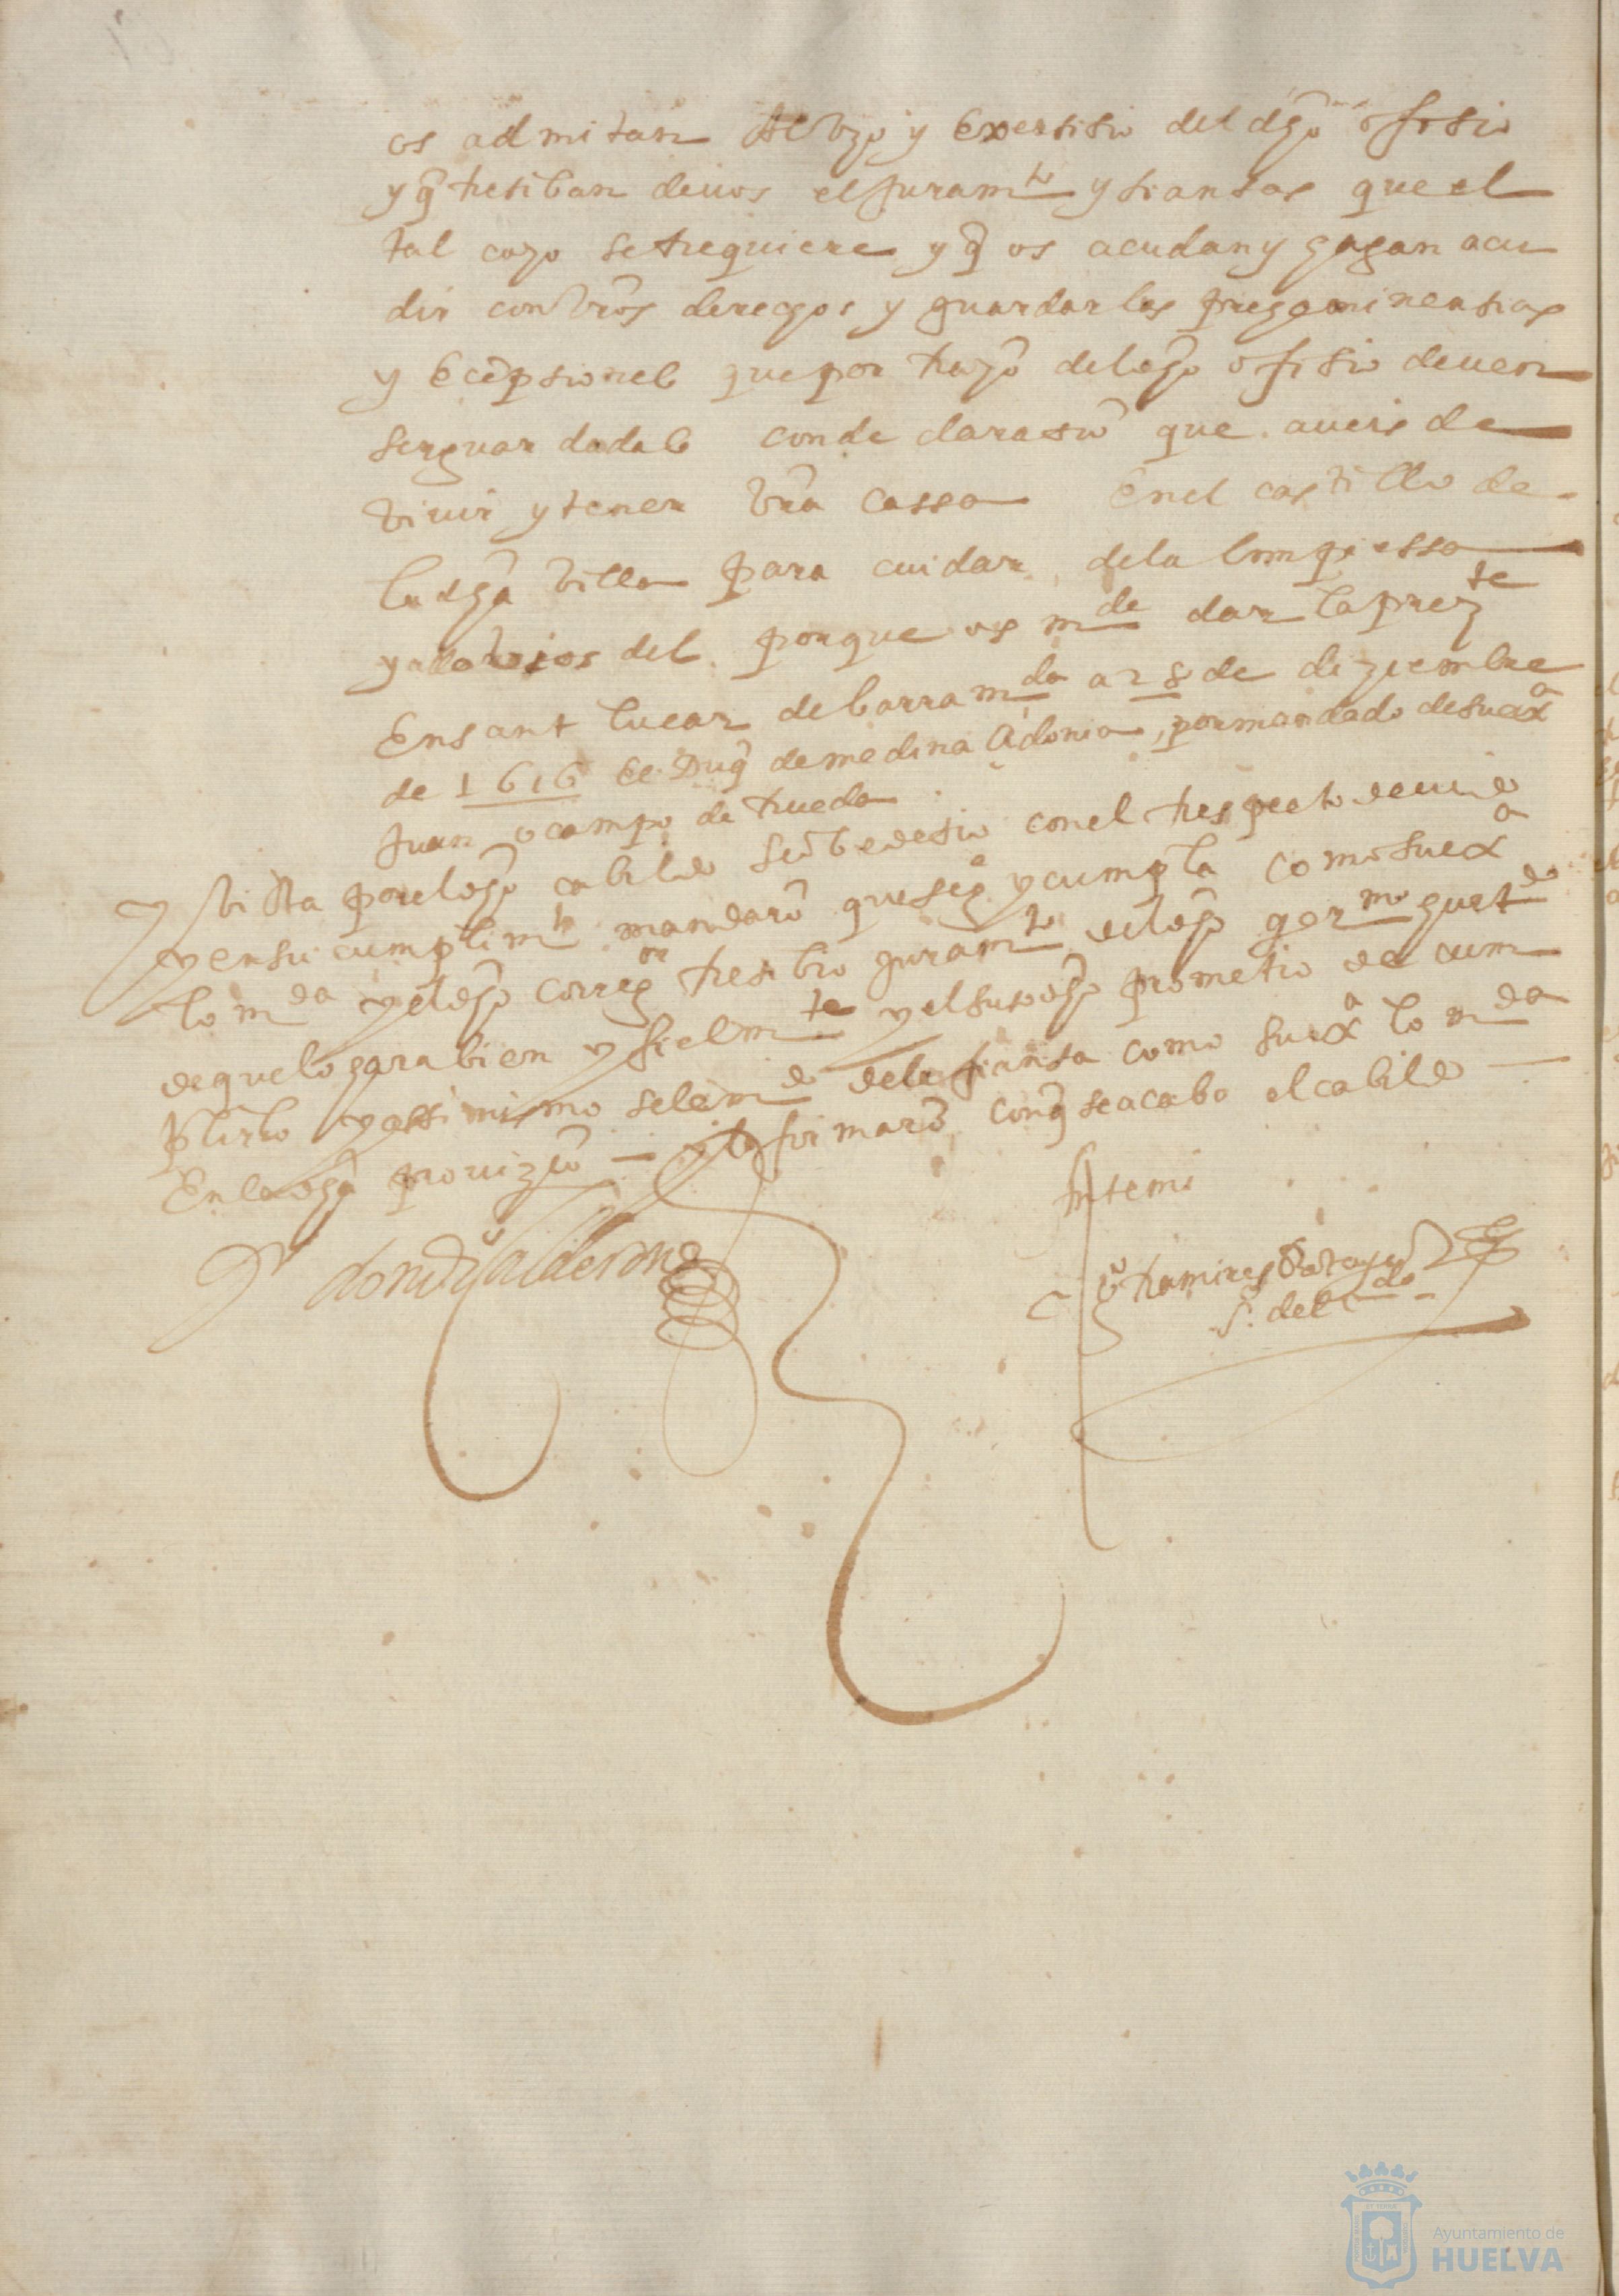 os admitan al vzo y exersisio del dho ofisio
y q̃ rresiban de vos el juramto y fiansas que el
tal cazo se rrequiere y q̃ os acudan y hagan acu
dir con vr̃os derechos y guardar las preheminensias
y ecepsiones que por rrazõ del dho ofisio deuen
ser guardadas con declarasiõ que aueis de
viuir y tener vr̃a cassa en el castillo de
la dha villa para cuidar de la limpiessa
y del porque os mde dar la prezte
En sant lucar de barramda a 28 de diziembre
de 1616 el Duq̃ de medina çidonia, por mandado de su exa
Juan ocampo de rrueda
Y vista por el dho cabildo se obedesio con el rrespecto deuido
y en su cumplimto mandarõ que se ge y cumpla como su exa
lo mda y el dho corregor rresibio juramto del dho germo hurtdo
de que lo hara bien y fielmte y el susodho prometio de cum
plirlo y assimismo se le mdo de la fiansa como su exa lo mda
En la dha prouiziõ — y lo firmarõ con q̃ se acabo el cabildo —
Ante mi
Dr don di calderon
ramires
s. del cdo
Ayuntamiento de
HUELVA